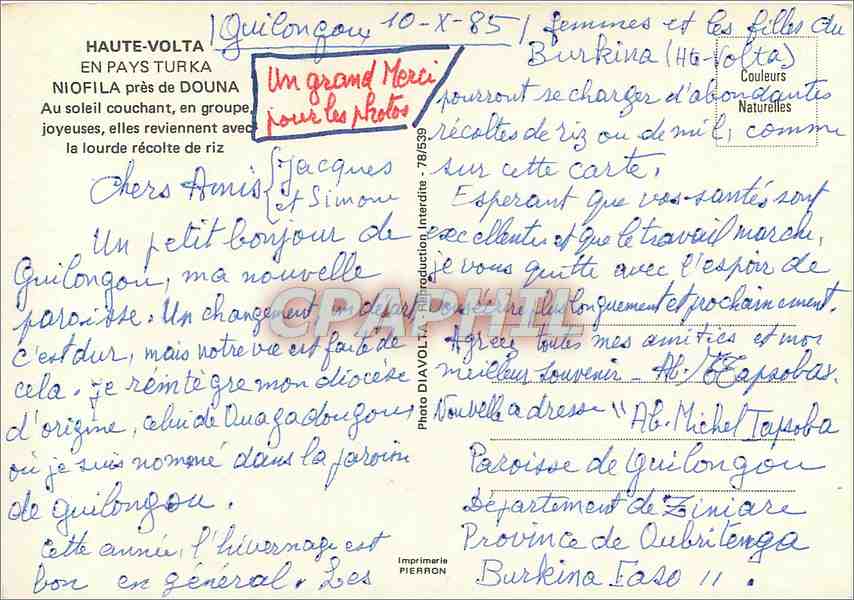 Guilongou, 10-X-85
HAUTE-VOLTA
EN PAYS TURKA
NIOFILA près de DOUNA
Au soleil couchant, en groupe,
joyeuses, elles reviennent avec
la lourde récolte de riz
Un grand Merci
pour les photos
Chers Amis Jacques
et Simone
Un petit bonjour de
Guilongou, ma nouvelle
paroisse. Un changement, un départ
c'est dur, mais notre vie est faite de
cela. je réintègre mon diocèse
d'origine, celui de Ouagadougou
où je suis nommé dans la paroisse
de guilongou.
Cette année, l'hivernage est
bon en général. Les
femmes et les filles du
Burkina (Hte-Volta)
pourront se charger d'abondantes
récoltes de riz ou de mil, comme
sur cette carte.
Esperant que vos santés sont
excellentes et que le travail marche,
je vous quitte avec l'espoir de
vous écrire plus longuement et prochainement.
Agréez toutes mes amitiés et mon
meilleur souvenir - Ab. Tapsoba.
Nouvelle adresse " Ab. Michel Tapsoba
Paroisse de Guilongou
Département de Ziniare
Province de Oubritenga
Burkina Faso ".
Couleurs
Naturelles
Photo DIAVOLTA - Reproduction Interdite - 78/539
Imprimerie
PIERRON
CPAPHIL